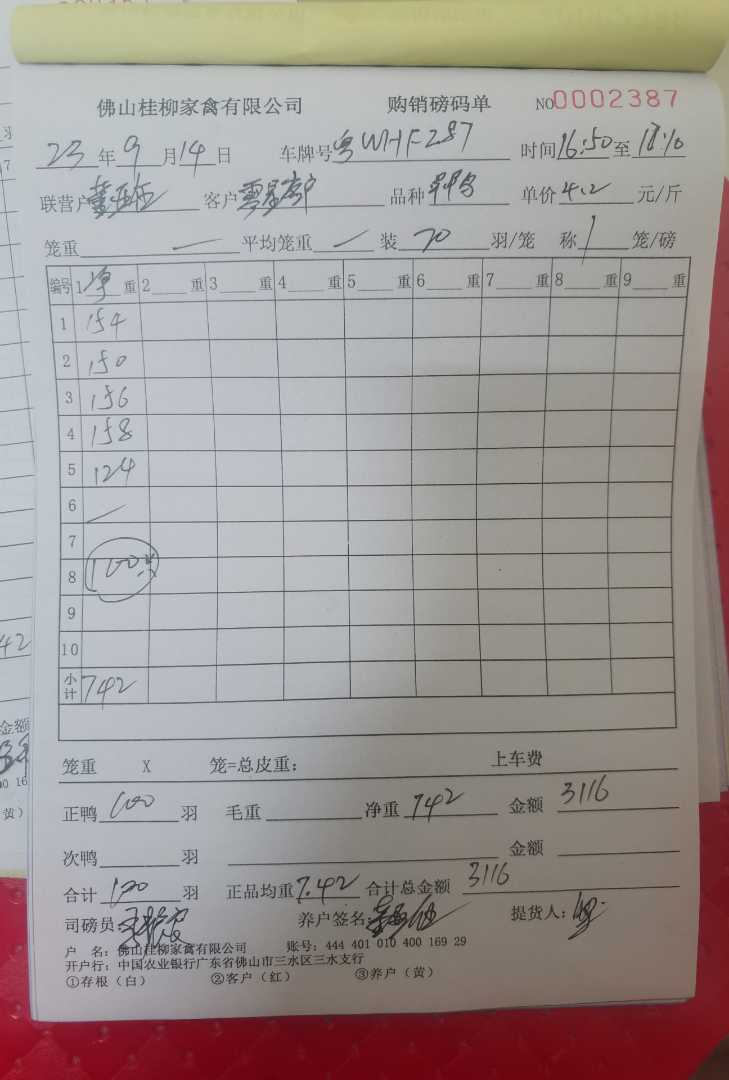 佛山桂柳家禽有限公司 购销磅码单 NO0002387
23年9月14日 车牌号粤WHF287 时间16:50至18:10
联营户 客户 品种 单价4.2元/斤
笼重 — 平均笼重 — 装20羽/笼 称1笼/磅
编号 1净重 2重 3重 4重 5重 6重 7重 8重 9重
1 154
2 150
3 156
4 158
5 124
6
7
8 100只
9
10
小计 742
笼重 X 笼=总皮重： 上车费
正鸭100羽 毛重 净重742 金额3116
次鸭 羽 金额
合计100羽 正品均重7.42 合计总金额3116
司磅员: 养户签名: 提货人:
户 名：佛山桂柳家禽有限公司 账号：444 401 010 400 169 29
开户行：中国农业银行广东省佛山市三水区三水支行
①存根（白） ②客户（红） ③养户（黄）